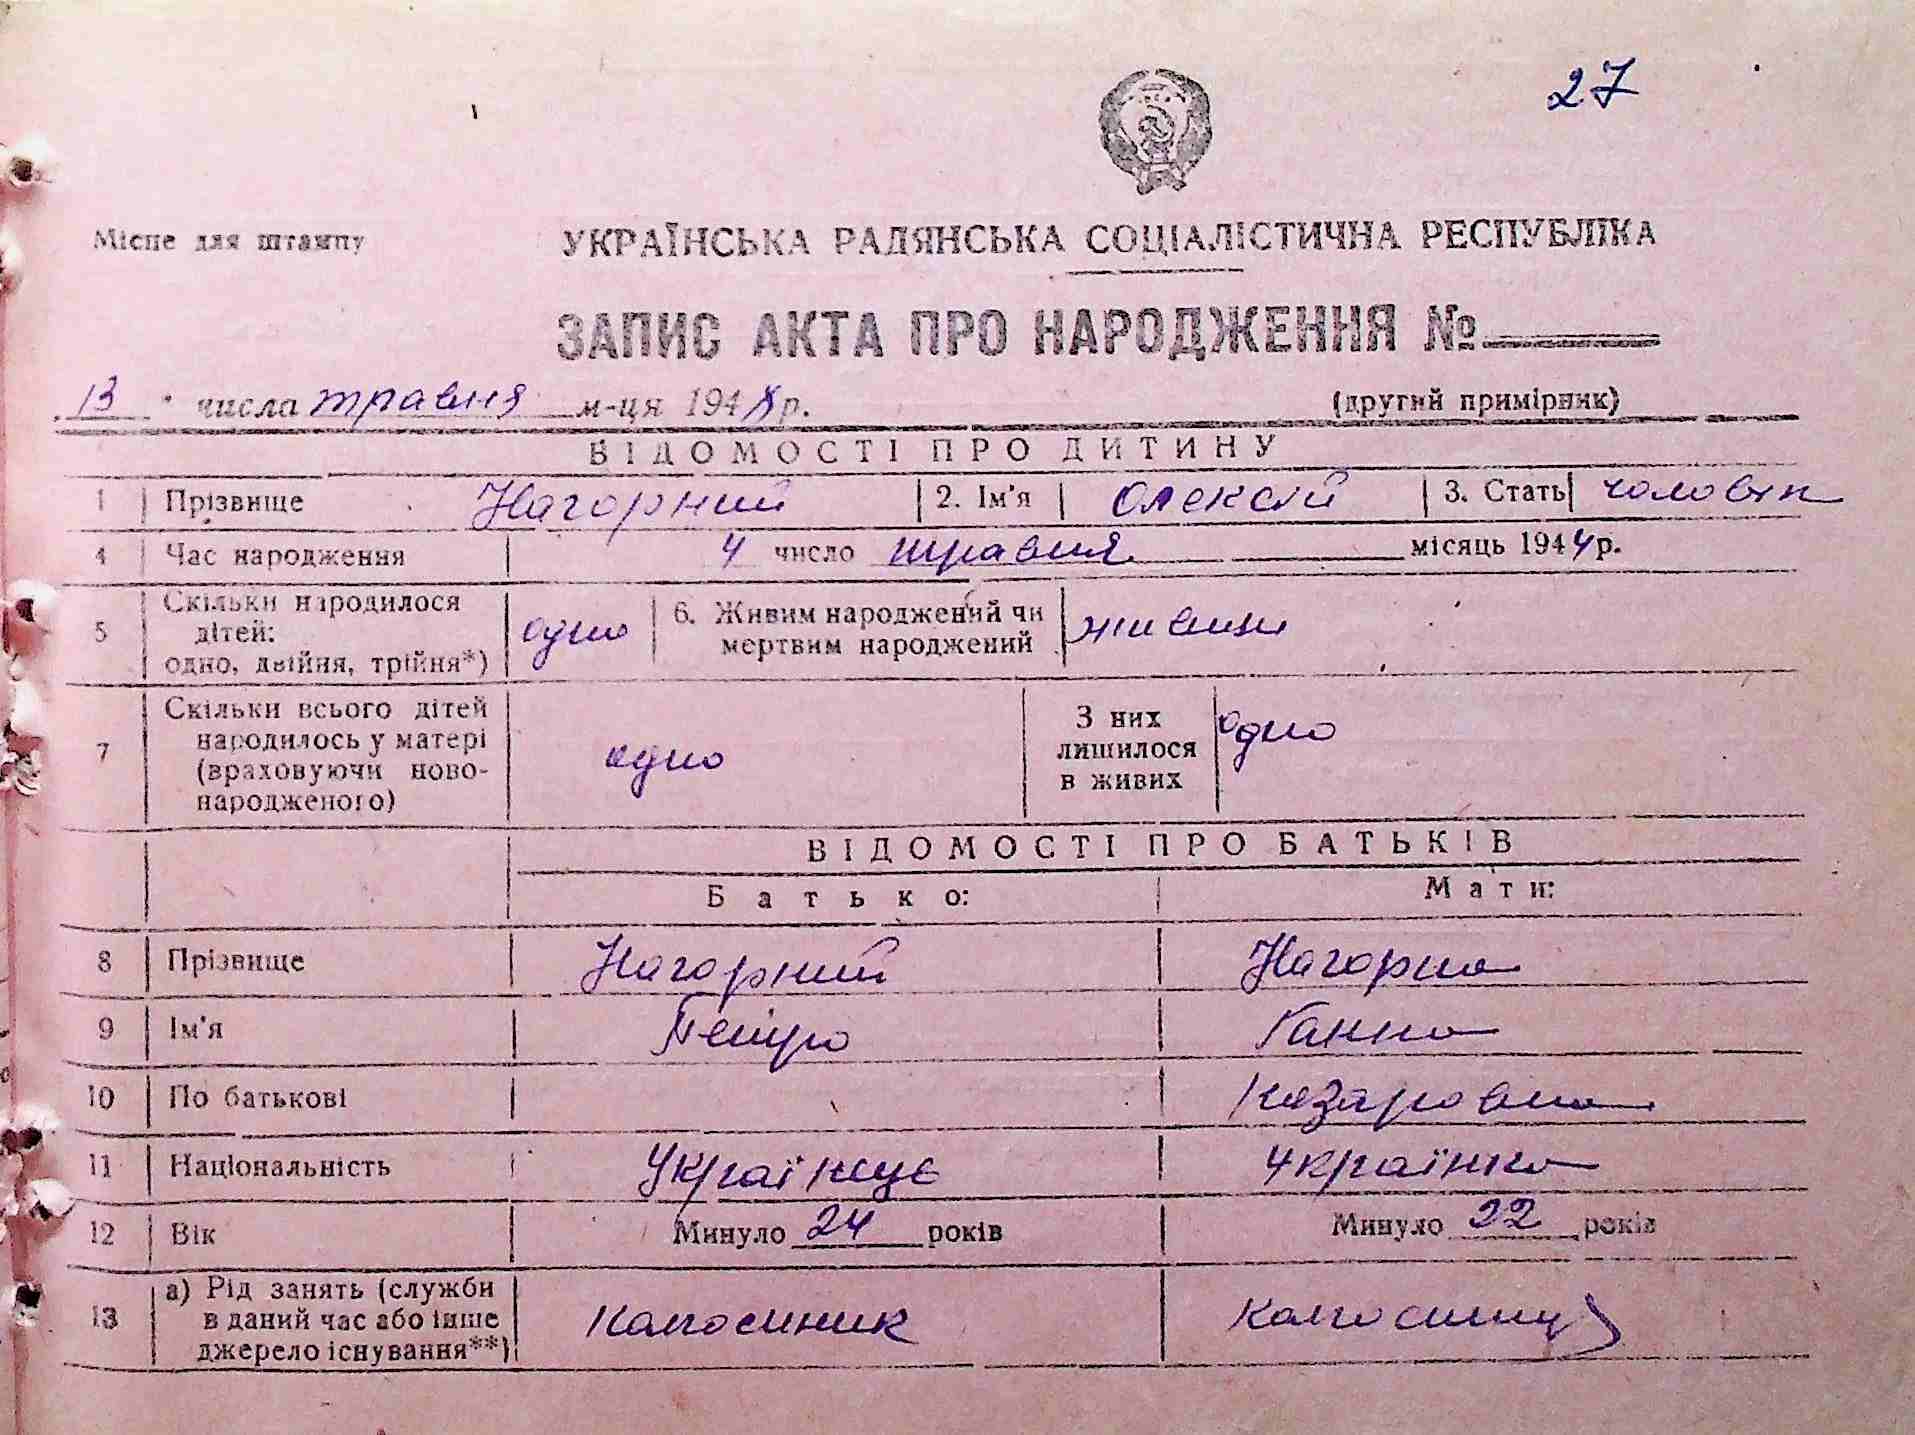 27
Місце для штампу
УКРАЇНСЬКА РАДЯНСЬКА СОЦІАЛІСТИЧНА РЕСПУБЛІКА
ЗАПИС АКТА ПРО НАРОДЖЕННЯ №
13 числа травня м-ця 194 р.
(другий примірник)
ВІДОМОСТІ ПРО ДИТИНУ
1 Прізвище Нагорний 2. Ім'я Олексій 3. Стать чоловік
4 Час народження 4 число травня місяць 1944 р.
5 Скільки народилося дітей: одно, двійня, трійня*) одно 6. Живим народжений чи мертвим народжений живим
7 Скільки всього дітей народилось у матері (враховуючи ново-народженого) одно З них лишилося в живих одно
ВІДОМОСТІ ПРО БАТЬКІВ
Батько: Мати:
8 Прізвище Нагорний Нагорна
9 Ім'я Петро Ганна
10 По батькові
11 Національність Українец Українка
12 Вік Минуло 24 років Минуло 22 років
13 а) Рід занять (служби в даний час або інше джерело існування**) колгоспник